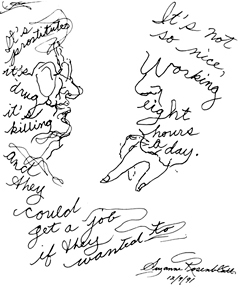 It's
prostitutes
it's
drugs
it's
killing
and
they
could
get a job
if they
wanted to
It's not
so nice,
Working
eight
hours
a day.
Suzanne Rosenblatt
12/9/91